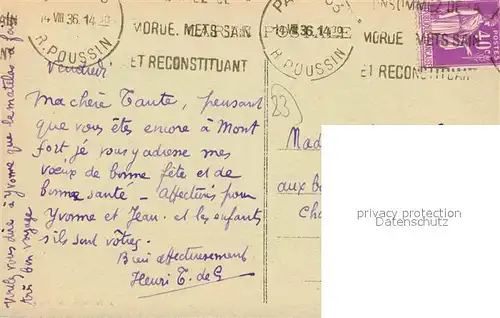 14 VIII 36. 14
R. POUSSIN
MORUE. METS SAIN
ET RECONSTITUANT
14 VIII 36. 14
R. POUSSIN
MORUE METS SAIN
ET RECONSTITUANT
40c
Vendredi
Ma chère Tante, pensant
que vous êtes encore à Mont
fort je vous y adresse mes
vœux de bonne fête et de
bonne santé – affectueux pour
Yvonne et Jean. et les enfants
s'ils sont vôtres.
Bien affectueusement
Henri T. de G
Voulez vous dire à Yvonne que le matelas a fait
très bon voyage
23
Mad
aux
Ch
privacy protection
www.delcampe.net